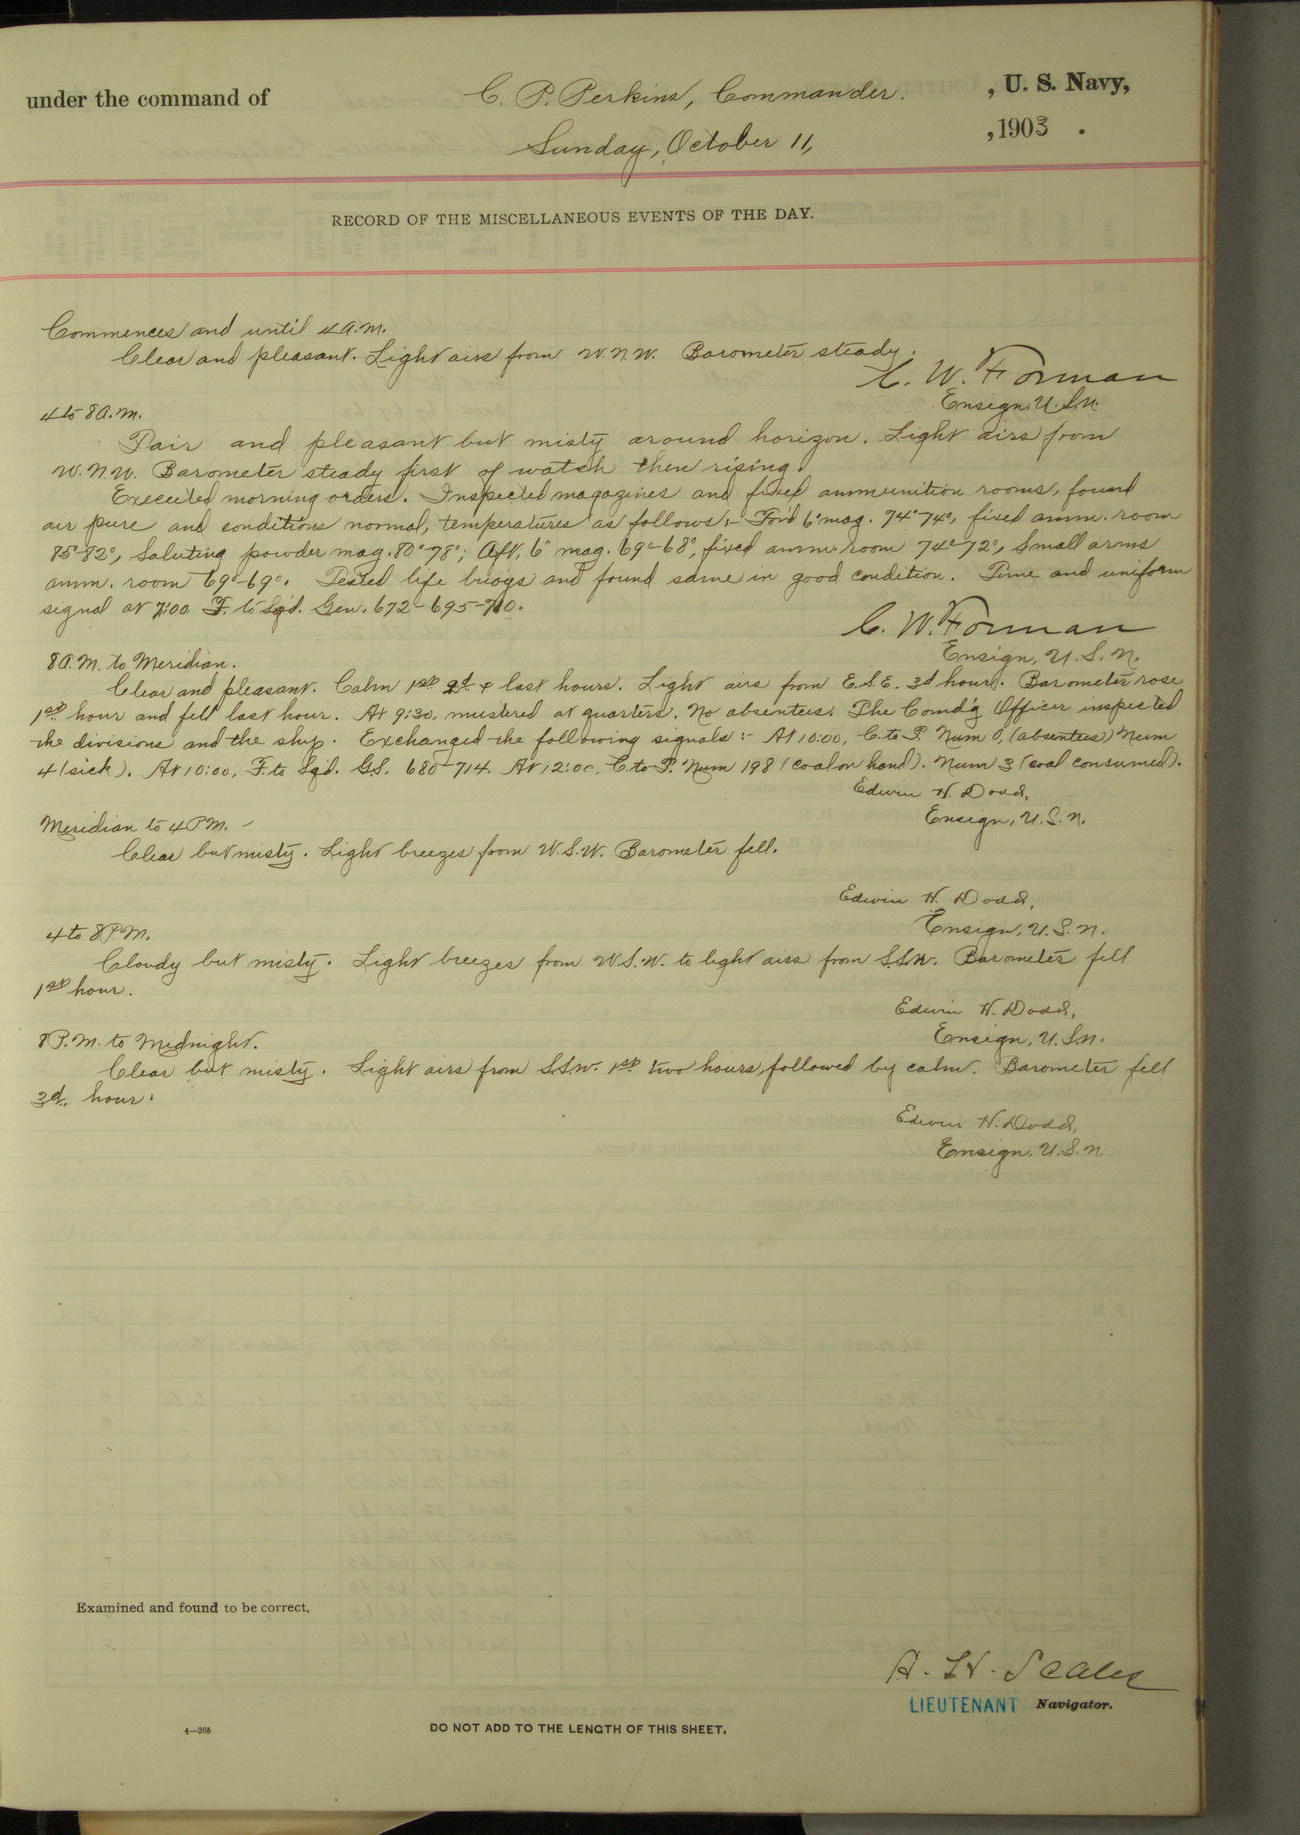 under the command of C. P. Perkins, Commander. , U. S. Navy,
Sunday, October 11, , 1903 .
RECORD OF THE MISCELLANEOUS EVENTS OF THE DAY.
Commences and until 4 A.M.
Clear and pleasant. Light airs from W.N.W. Barometer steady.
C. W. Forman
Ensign, U.S.N.
4 to 8 A.M.
Fair and pleasant but misty around horizon. Light airs from
W.N.W. Barometer steady first of watch then rising.
Executed morning orders. Inspected magazines and fixed ammunition rooms, found
air pure and conditions normal, temperatures as follows:- For'd 6" mag. 74°-74°, fixed amm. room
85°-82°, Saluting powder mag. 80°-78°; Aft, 6" mag. 69°-68°, fixed amm. room 74°-72°, Small arms
amm. room 69°-69°. Tested life buoys and found same in good condition. Time and uniform
signal at 7:00 F. to Sqd. Gen. 672-695-710.
C. W. Forman
Ensign, U.S.N.
8 A.M. to Meridian.
Clear and pleasant. Calm 1st 2d & last hours. Light airs from E.S.E. 3d hour. Barometer rose
1st hour and fell last hour. At 9:30, mustered at quarters. No absentees. The Comd'g Officer inspected
the divisions and the ship. Exchanged the following signals:- At 10:00, C. to P. Num 0, (absentees) Num
4 (sick). At 10:00, F. to Sqd. G.S. 680-714. At 12:00, C. to P. Num 198 (coal on hand). Num 3 (coal consumed).
Edwin H. Dodd,
Ensign, U.S.N.
Meridian to 4 P.M. -
Clear but misty. Light breezes from W.S.W. Barometer fell.
Edwin H. Dodd,
Ensign, U.S.N.
4 to 8 P.M.
Cloudy but misty. Light breezes from W.S.W. to light airs from S.S.W. Barometer fell
1st hour.
Edwin H. Dodd,
Ensign, U.S.N.
8 P.M. to Midnight.
Clear but misty. Light airs from S.S.W. 1st two hours, followed by calm. Barometer fell
3d. hour.
Edwin H. Dodd,
Ensign, U.S.N.
Examined and found to be correct.
A. H. Scales
LIEUTENANT Navigator.
4—265 DO NOT ADD TO THE LENGTH OF THIS SHEET.